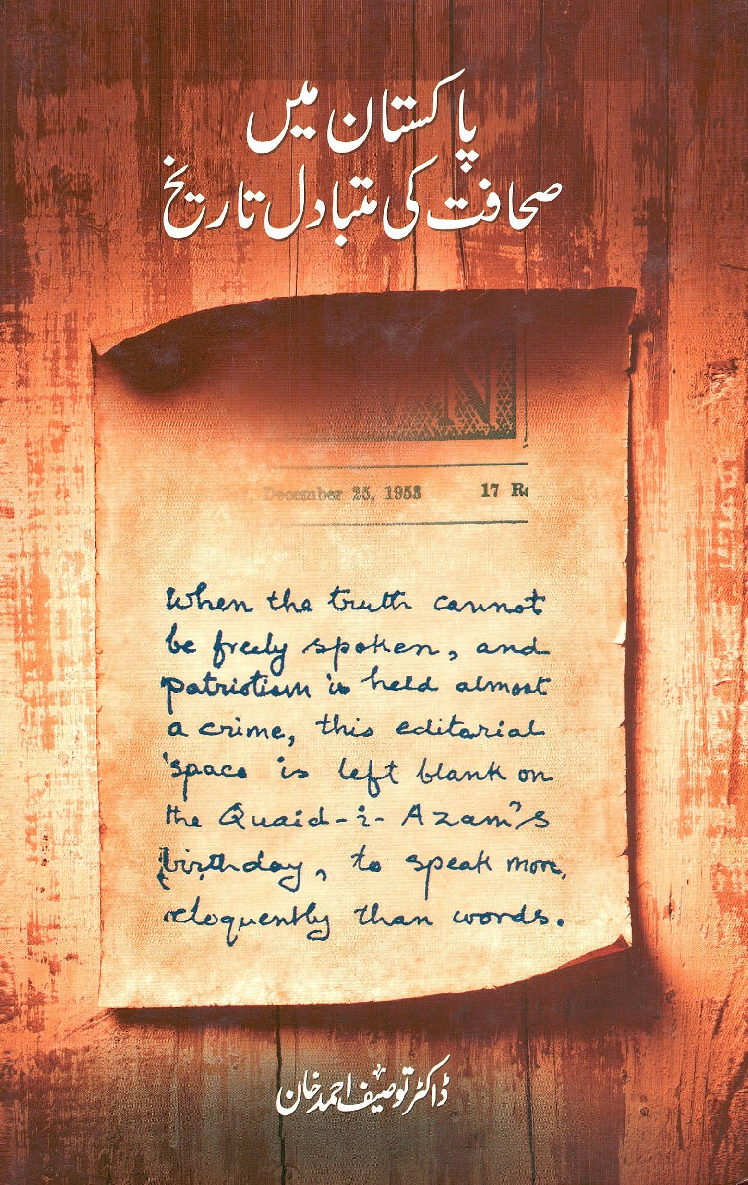 پاکستان میں
صحافت کی متبادل تاریخ
N
December 25, 1953 17 R
When the truth cannot
be freely spoken, and
patriotism is held almost
a crime, this editorial
space is left blank on
the Quaid-i-Azam's
birthday, to speak more
eloquently than words.
ڈاکٹر توصیف احمد خان